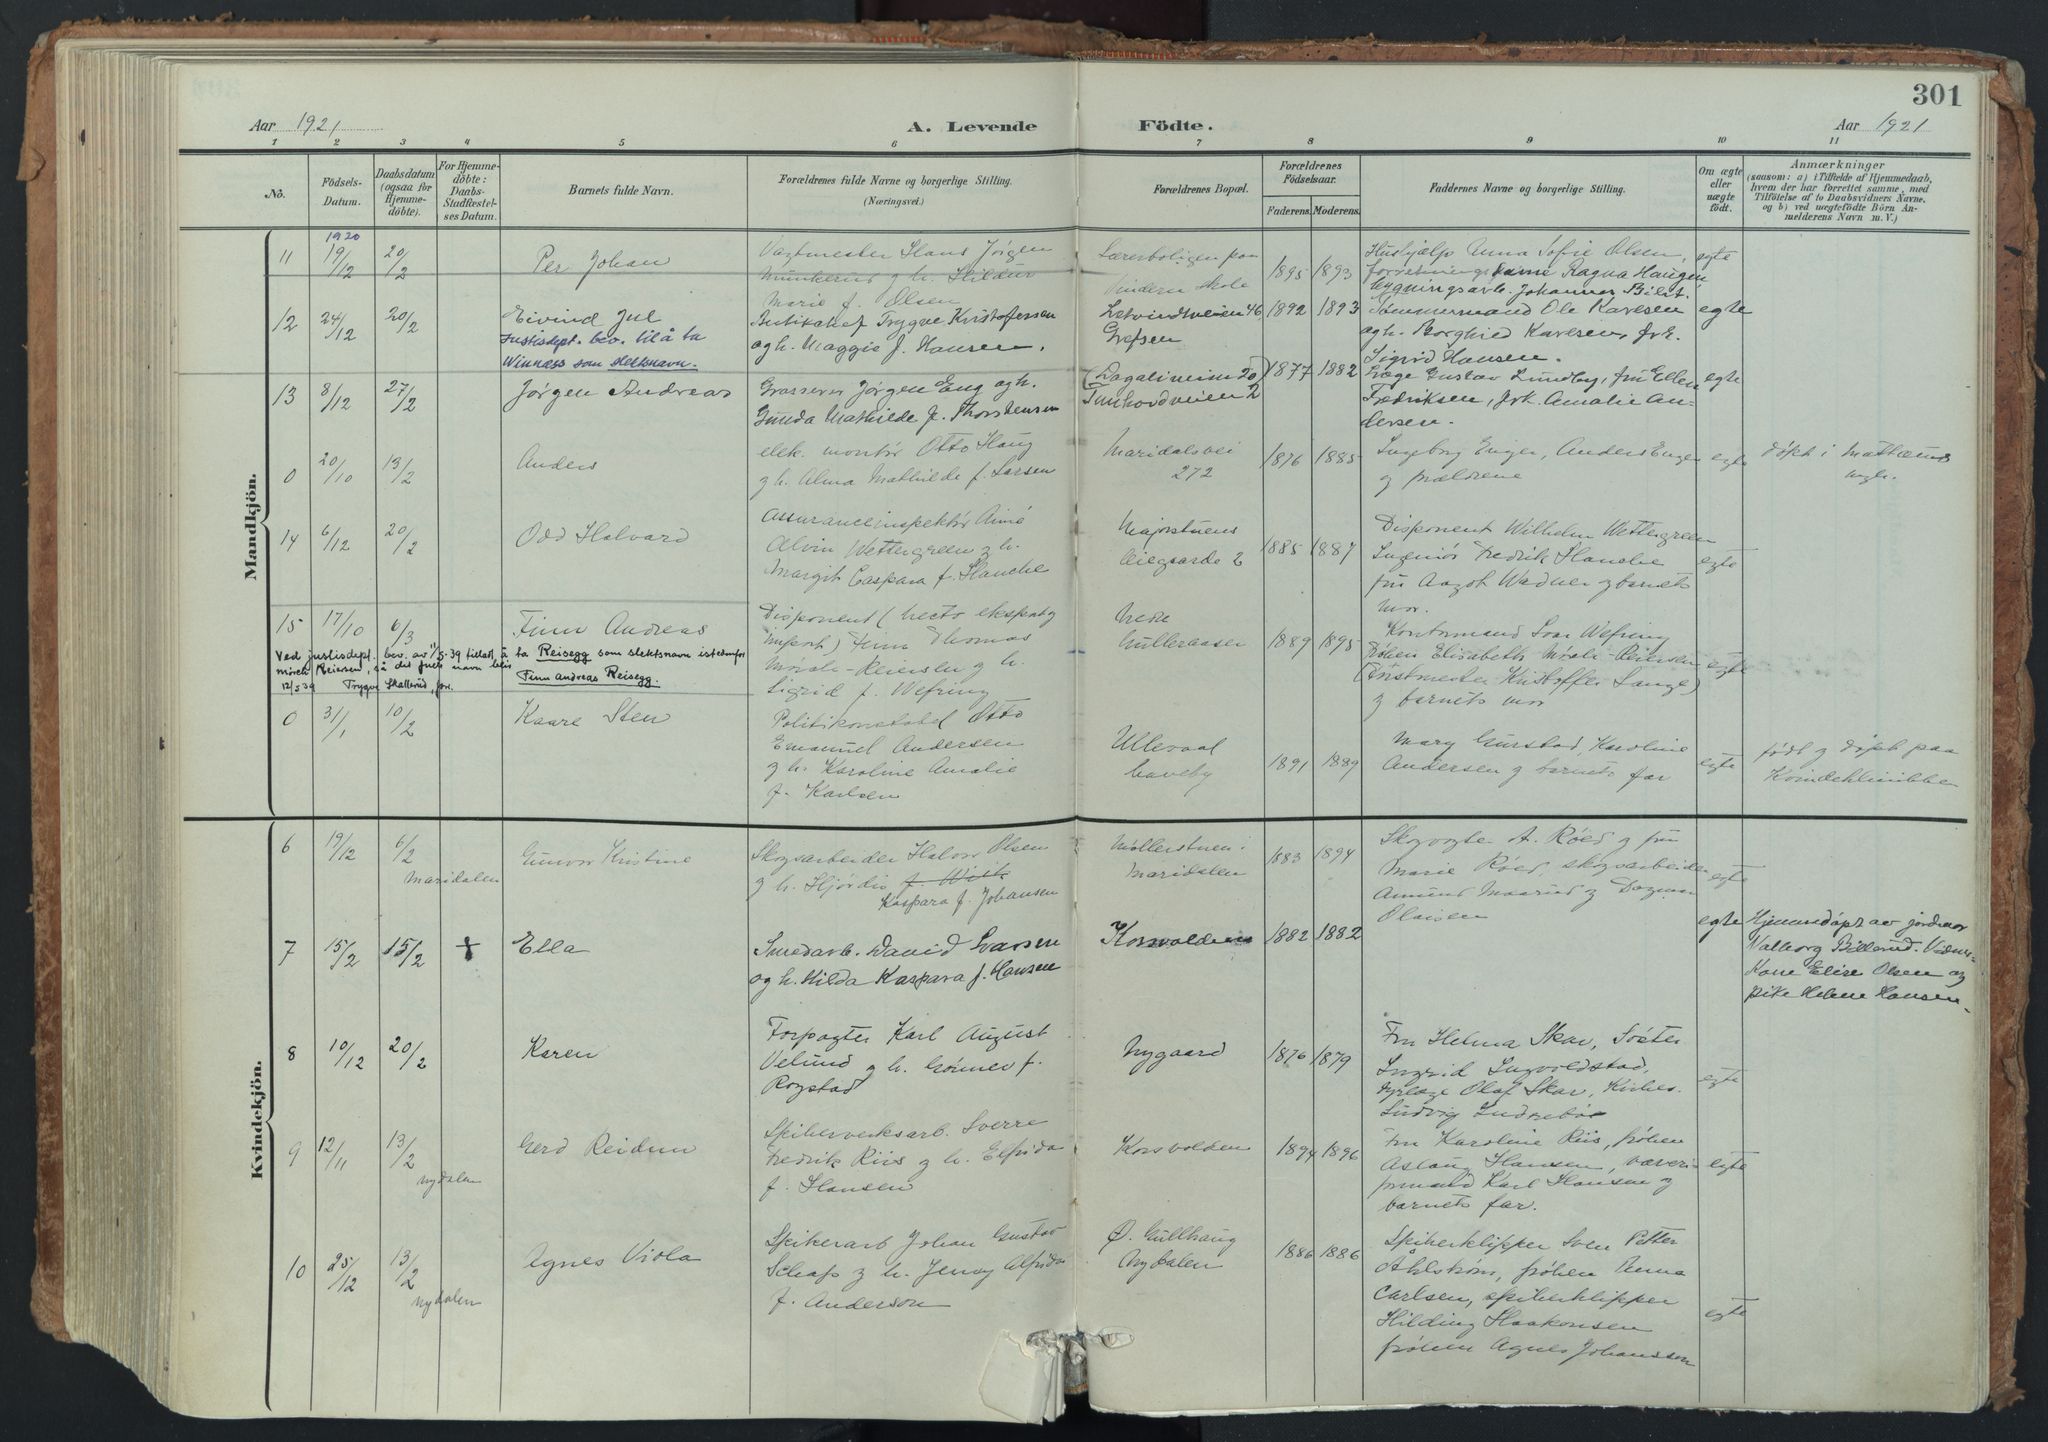 301
Aar 1921
A. Levende
Födte.
Aar 1921
1 2 3 4 5 6 7 8 9 10 11
Nò.
Födsels-
Datum.
Daabsdatum
(ogsaa for
Hjemme-
döbte).
For Hjemme-
döbte:
Daabs-
Stadfæstel-
ses Datum.
Barnets fulde Navn.
Forældrenes fulde Navne og borgerlige Stilling.
(Næringsvei.)
Forældrenes Bopæl.
Forældrenes
Födselsaar.
Faderens. Moderens.
Faddernes Navne og borgerlige Stilling.
Om ægte
eller
uægte
födt.
Anmærkninger
(saasom: a) i Tilfælde af Hjemmedaab,
hvem der har forrettet samme, med
Tilföielse af to Daabsvidners Navne,
og b) ved uægtefödte Börn An-
melderens Navn m. V.)
Mandkjön.
1920
11 19/12 20/2 Per Johan
Vagtmester Hans Jørgen
Munkerud g h. Hildur
Marie f. Olsen
Lærerboligen paa
Vindern skole
1895 1893
Hushjælp Anna Sofie Olsen,
forretningsdame Ragna Haugen
bygningsarb. Johannes
egte
12 24/12 20/2 Eivind Jul
Justisdept. bev. til å ta
Winnæss som slektsnavn.
Trygve Kristoffersen
og h. Maggie f. Hansen.
46
Grefsen
1892 1893
Tømmermand Ole Karlsen
og h. Borghild Karlsen, frk.
Sigrid Hansen.
egte
13 8/12 27/2 Jørgen Andreas
Grosserer Jørgen Eng og h.
Gunda Mathilde f. Thorstensen
(Dagaliveien 20)
Tunhovdveien 2
1877 1882
Læge Gustav Lundby, fru Ellen
Fredriksen, frk. Amalie An-
dersen.
egte
0 20/10 13/2 Anders
elek. montør Otto Haug
g h. Alma Mathilde f. Larsen
Maridalsvei
272
1876 1885
Ingeborg Enger, Anders Enger
g forældrene
egte
døpt i Mattæus
14 6/12 20/2 Odd Halvard
Assuranceinspektør Aimé
Alvin Wettergreen g h.
Margit Caspara f. Hanche
Majorstuens
2
1885 1887
Disponent Wilhelm Wettergreen
Ingeniør Fredrik Hanche
fru Aagot g barnets
mor.
egte
15 17/10 6/3 Finn Andreas
Ved justisdept. bev. av 1/5-39 tillatt å ta Reisegg som slektsnavn istedenfor
Mørch Reiersen, så det fulle navn blir
12/5 39 Trygve Skallerud, Finn Andreas Reisegg.
Disponent ( eksport g
import) Finn Thomas
Mørch-Reiersen g h.
Sigrid f. Wefring
Nedre
Gulleraasen
1889 1895
Kontormand Ivar Wefring
frøken Elisabeth Mørch-Reiersen
Kristoffer Lange)
g barnets mor
egte
0 31/1 10/2 Kaare Sten
Politikonstabel Otto
Emanuel Andersen
g h. Karoline Amalie
f. Karlsen
Ullevaal
haveby
1891 1889
Mary Gurstad, Karoline
Andersen g barnets far
egte
født g døpt paa
Kvindeklinikke
Kvindekjön.
6 19/12 6/2
Maridalen
Gunvor Kristine
Skogsarbeider Halvor Olsen
g h. Hjørdis f. Wiik
Kaspara f. Johansen
Møllerstuen i
Maridalen
1883 1894
Skogvogter A. Røed g fru
Marie Røed, skogsarbeider
Amund Maarud g Dagmar
Olaisen
egte
7 15/2 15/2 + Ella
Smedarb. David Ivarsen
og h. Hilda Kaspara f. Hansen
Korsvolden
1882 1882
egte
Hjemmedøpt av jordmor
Valborg Billerud. Vidner
Kone Elise Olsen og
pike Helene Hansen.
8 10/12 20/2 Karen
Forpagter Karl August
Velund g h. Gønner f.
Rogstad
Nygaard
1876 1879
Fru Helma Skar, Søster
Ingrid Ingvoldstad,
dyrlæge Olaf Skar,
Ludvig Indrebø
egte
9 12/11 13/2
Nydalen
Gerd Reidun
Spikerverksarb. Sverre
Fredrik Riis g h. Elfrida
f. Hansen
Korsvolden
1894 1896
Fru Karoline Riis, frøken
Aslaug Hansen, væveri-
formand Karl Hansen g
barnets far.
egte
10 25/12 13/2
Nydalen
Agnes Viola
Spikerarb Johan Gustav
g h. Jenny Alfrida
f. Anderson
Ø. Gullhaug
Nydalen
1886 1886
Spikerklipper Sven Petter
Åhlstrøm, frøken Anna
Carlsen, spikerklipper
Hilding Haakonsen
frøken Agnes Johansson
egte